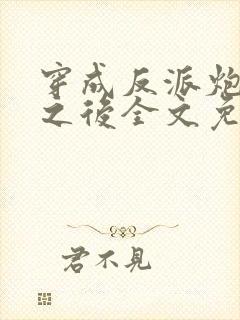 穿成反派炮
之後全文免
君不見